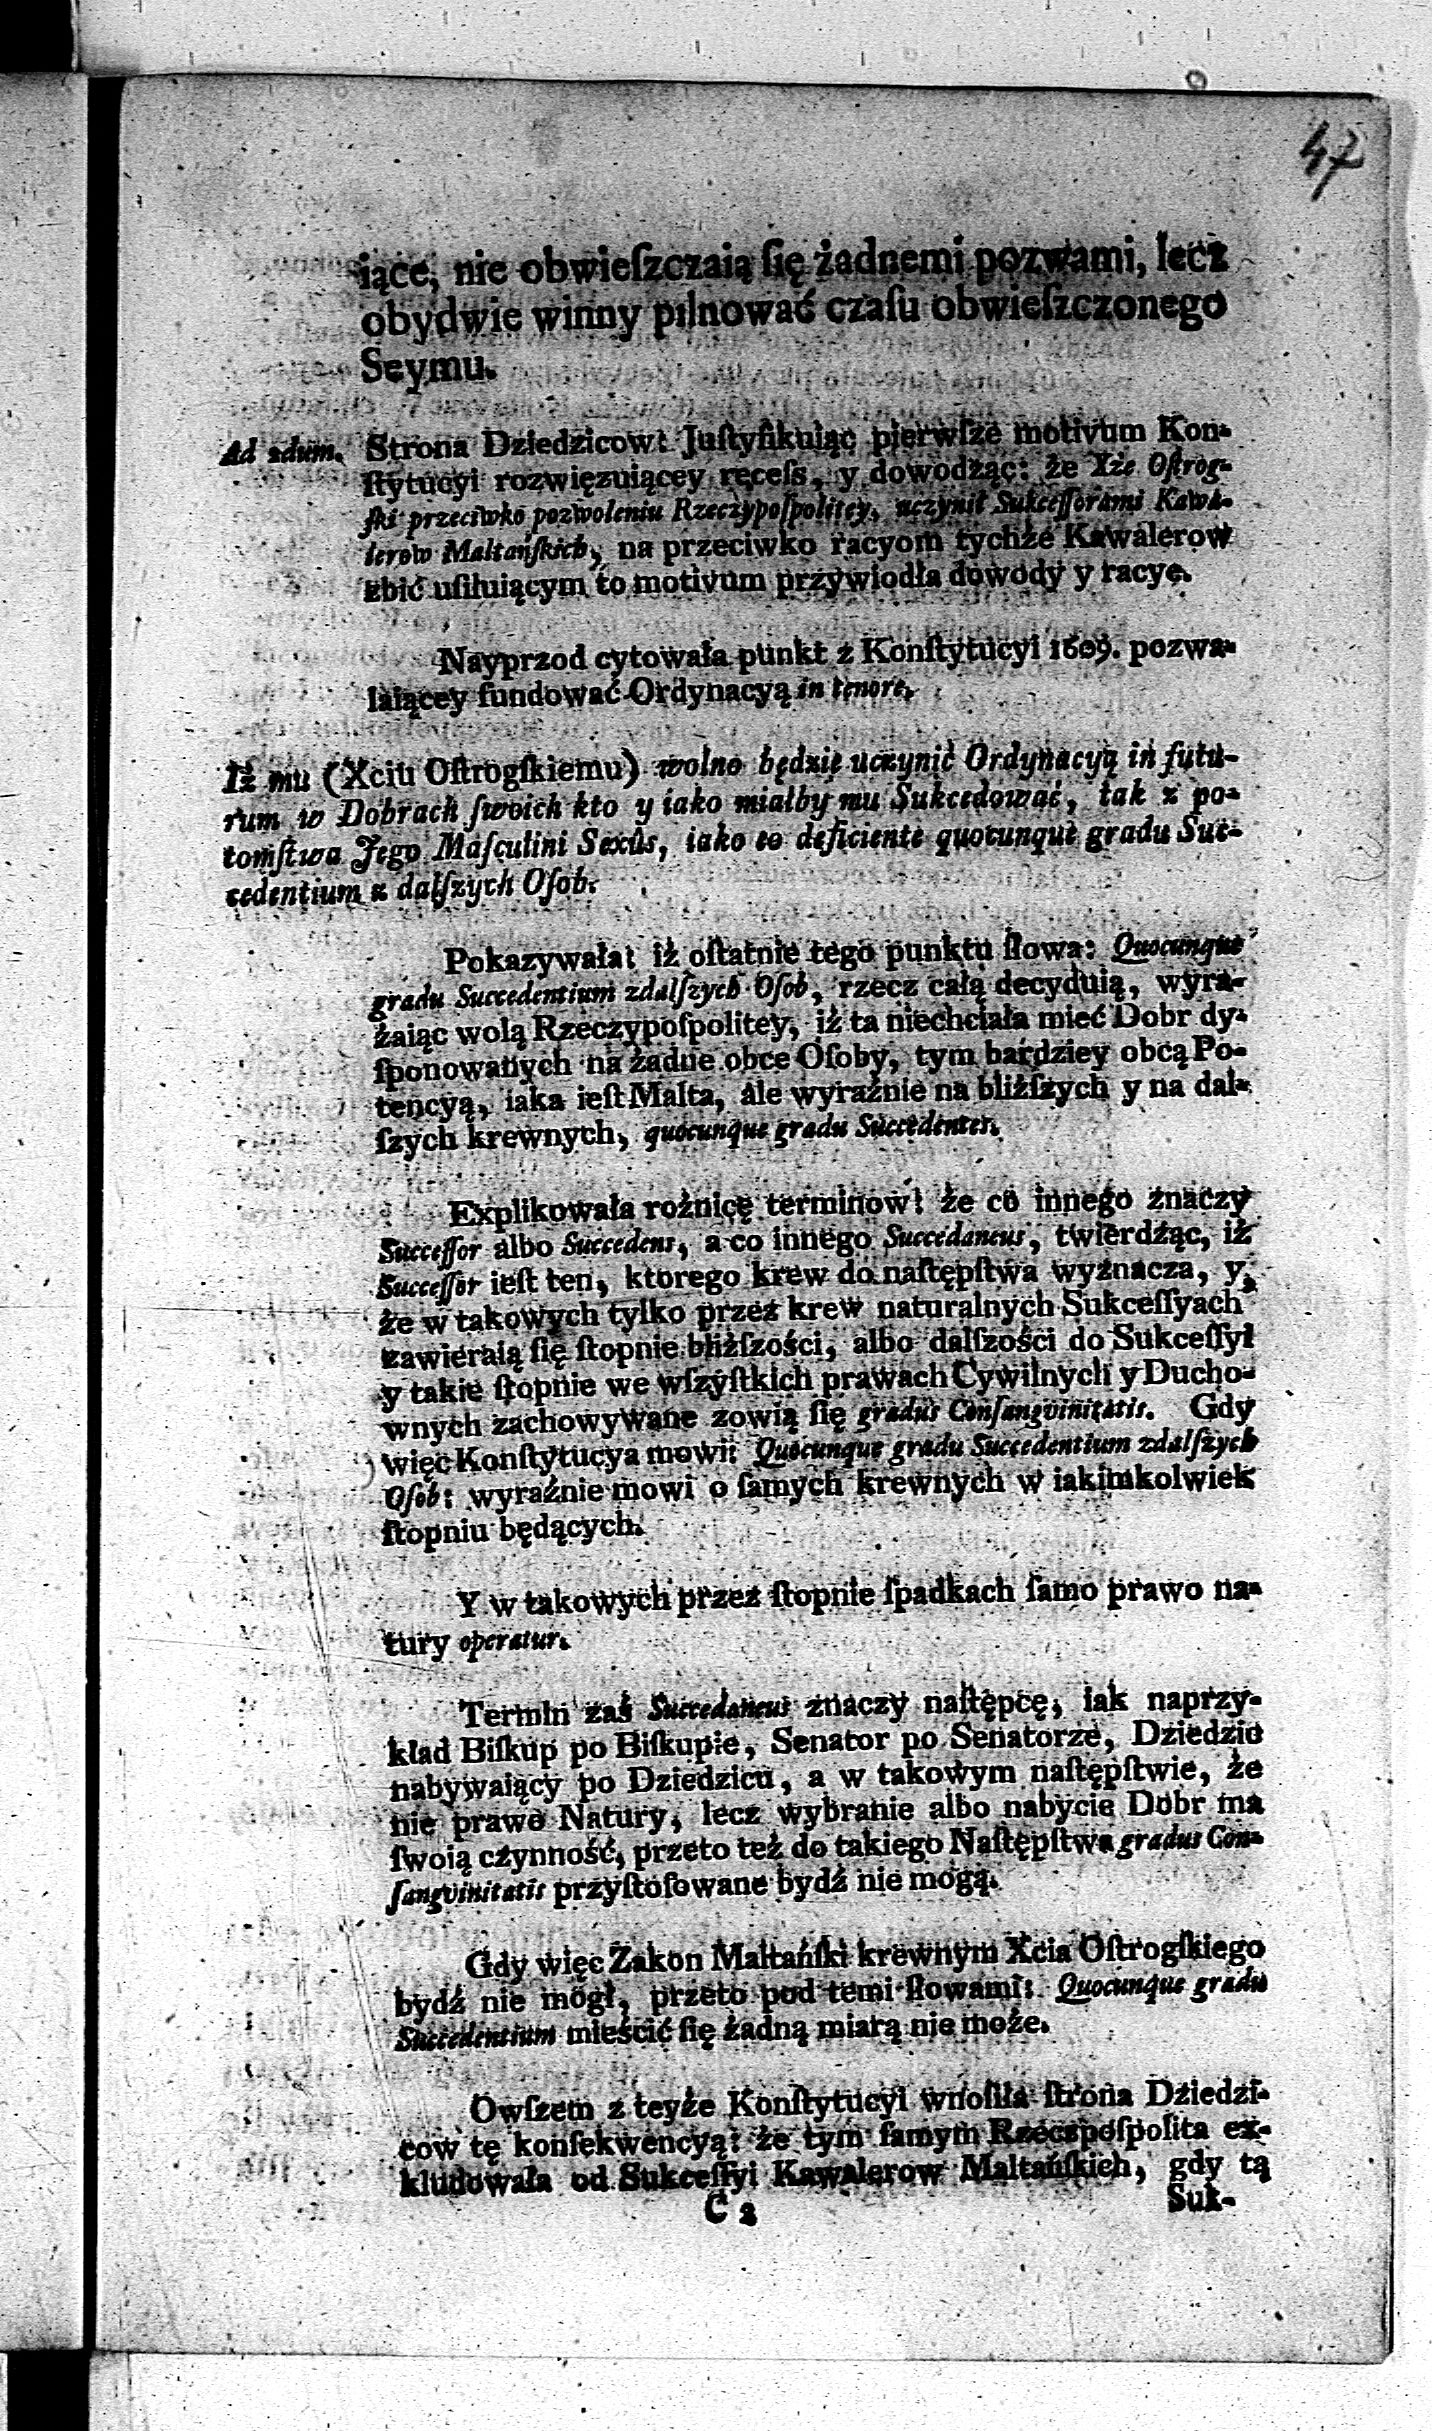 47
iące, nie obwieſzczaią ſię żadnemi pozwami, lecz
obydwie winny pilnować czaſu obwieſzczonego
Seymu.
Ad 2dum. Strona Dziedzicow: Juſtyfikuiąc pierwſze motivum Kon-
ſtytucyi rozwięzuiącey receſs, y dowodżąc: że Xże Oſtrog-
ſki przeciwko pozwoleniu Rzeczypoſpolitey, uczynił Sukceſſorami Kawa-
lerow Maltańſkich, na przeciwko racyom tychże Kawalerow
zbić uſiłuiącym to motivum przywiodła dowody y racye.
Nayprzod cytowała punkt z Konſtytucyi 1609. pozwa-
laiącey fundować Ordynacyą in tenore.
Iż mu (Xciu Oſtrogſkiemu) wolno będzie uczynić Ordynacyą in futu-
rum w Dobrach ſwoich kto y iako miałby mu Sukcedować, tak z po-
tomſtwa Jego Maſculini Sexûs, iako eo deficiente quocunque gradu Suc-
cedentium z dalſzych Oſob.
Pokazywała: iż oſtatnie tego punktu ſłowa: Quocunque
gradu Succedentium zdalſzych Oſob, rzecz całą decyduią, wyra-
żaiąc wolą Rzeczypoſpolitey, iż ta niechciała mieć Dobr dy-
ſponowanych na żadne obce Oſoby, tym bardziey obcą Po-
tencyą, iaka ieſt Malta, ale wyraźnie na bliżſzych y na dal-
ſzych krewnych, quocunque gradu Succedentes.
Explikowała rożnicę terminow: że co innego znaczy
Succeſſor albo Succedens, a co innego Succedaneus, twierdżąc, iż
Succeſſor ieſt ten, ktorego krew do naſtępſtwa wyznacza, y
że w takowych tylko przez krew naturalnych Sukceſſyach
zawieraią ſię ſtopnie bliżſzości, albo dalſzości do Sukceſſyi
y takie ſtopnie we wſzyſtkich prawach Cywilnych y Ducho-
wnych zachowywane zowią ſię gradus Conſangvinitatis. Gdy
więc Konſtytucya mowi: Quocunque gradu Succedentium zdalſzych
Oſob: wyraźnie mowi o ſamych krewnych w iakimkolwiek
ſtopniu będących.
Y w takowych przez ſtopnie ſpadkach ſamo prawo na-
tury operatur.
Termin zaś Succedaneus znaczy naſtępcę, iak naprzy-
kład Biſkup po Biſkupie, Senator po Senatorze, Dziedzic
nabywaiący po Dziedzicu, a w takowym naſtępſtwie, że
nie prawo Natury, lecz wybranie albo nabycie Dobr ma
ſwoią czynność, przeto też do takiego Naſtępſtwa gradus Con-
ſangvinitatis przyſtoſowane bydź nie mogą.
Gdy więc Zakon Maltańſki krewnym Xcia Oſtrogſkiego
bydź nie mogł, przeto pod temi ſłowami: Quocunque gradu
Succedentium mieścić ſię żadną miarą nie może.
Owſzem z teyże Konſtytucyi wnoſiła ſtrona Dziedzi-
cow tę konſekwencyą: że tym ſamym Rzeczpoſpolita ex-
kludowała od Sukceſſyi Kawalerow Maltańſkich, gdy tą
C 2 Suk-